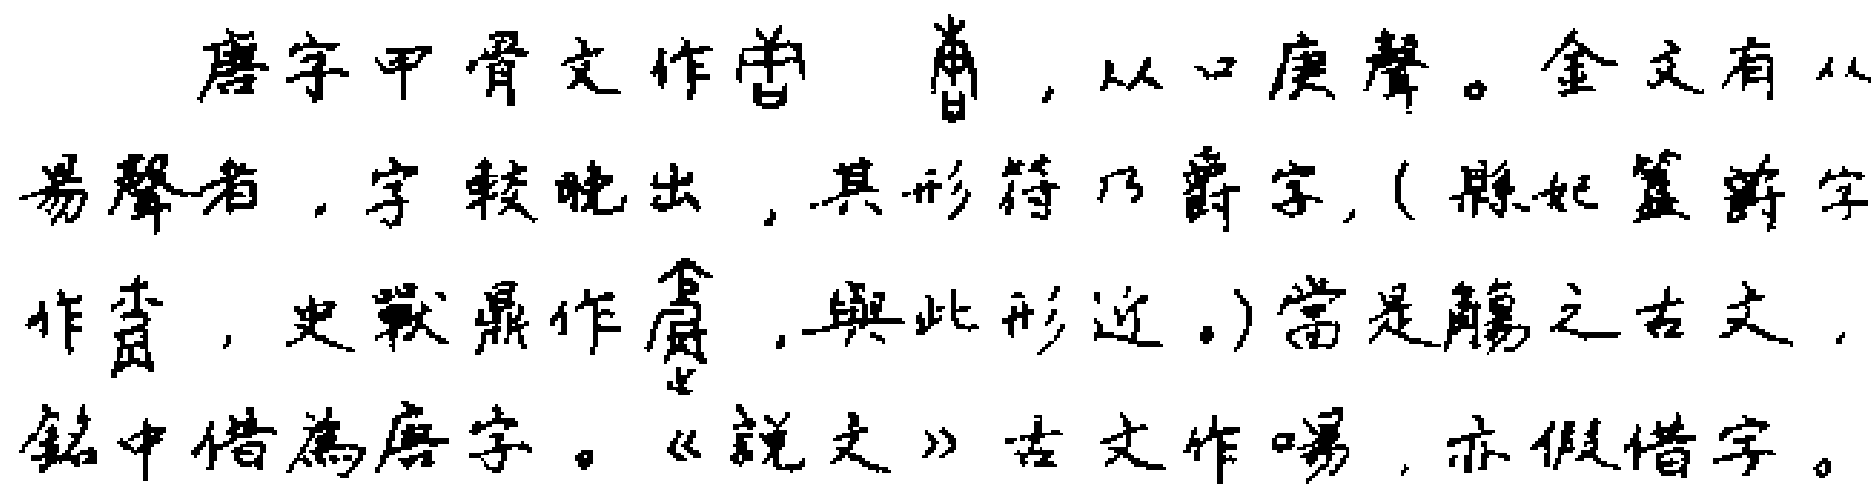 唐字甲骨文作 ，从口庚聲。金文有从
昜聲者，字較晚出，其形符乃爵字，(縣妃簋爵字
作 ，史獸鼎作 ，與此形近。)當是觴之古文，
銘中借為唐字。《說文》古文作啺，亦假借字。